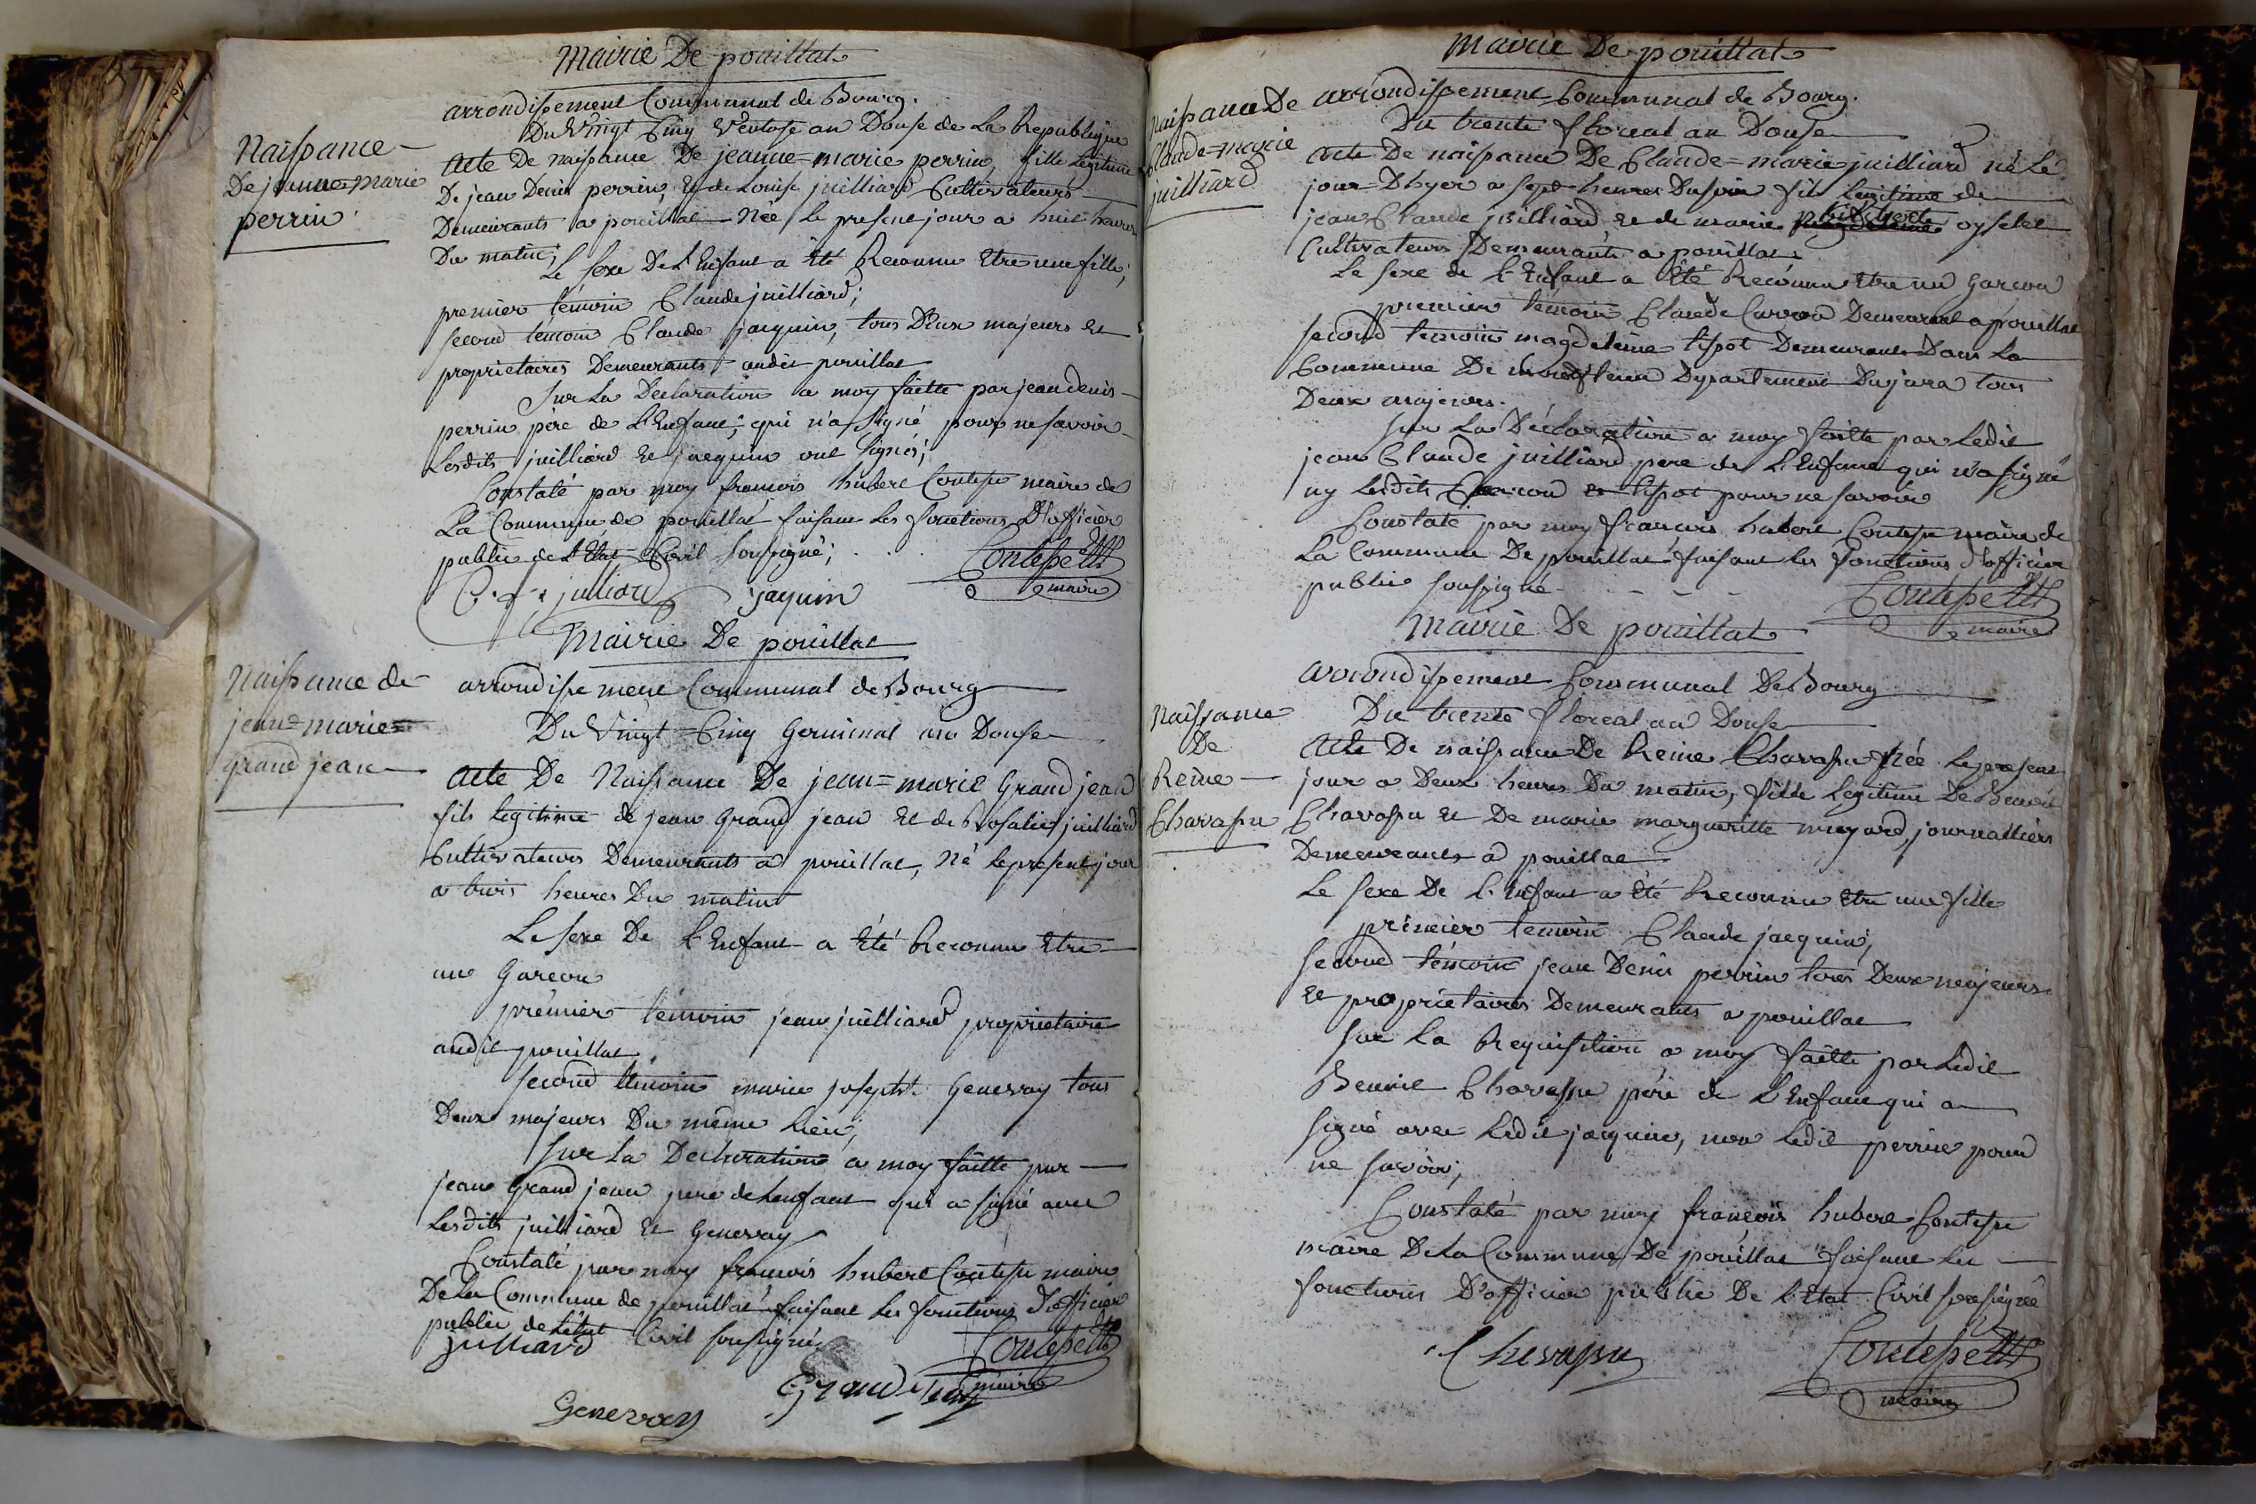 Mairie De pouillat
arrondissement Communal de Bourg.
Naissance
De jeanne marie
perrin
Du Vingt Cinq Ventose an Douse de La Republique
Acte De naissance De jeanne=marie perrin fille Legitime
De jean Denis perrin, et de Louise juilliard Cultivateurs
Demeurants a pouillat Née le present jour a huit heures
Du matin;
Le sexe De L'Enfant a Eté Reconnu Etre une fille;
premier témoin Claude juilliard;
second témoin Claude jacquin, tous Deux majeurs et
proprietaires Demeurants audit pouillat
Sur La Declaration a moy faitte par jean denis
perrin père de L'Enfant; qui n'a signé pour ne savoir
Lesdits juilliard et jacquin ont signés;
Constaté par moy francois hubert Contesse maire de
La Commune de pouillat faisant Les fonctions D'officier
public de L'Etat Civil soussigné;
juilliard jaquin maire
Mairie De pouillat
Naissance de
jean=marie=
grand jean
arrondissement Communal de Bourg
Du Vingt=Cinq Germinal an Douse
Acte De Naissance De jean=marie Grand jean
fils legitime de jean Grand jean et de Rosalie juilliard
Cultivateurs Demeurants a pouillat, Né le present jour
a trois heures Du matin
Le sexe De L'Enfant a Eté Reconnu Etre
un Garcon
prémier témoin jean juilliard proprietaire
audit pouillat.
second témoin marie joseph Genevay tous
Deux majeurs Du même Lieu;
Sur La Declaration a moy faitte par
jean Grand jean pere de Lenfant qui a signé avec
Lesdits juilliard et Genevay
Constaté par moy francois hubert Contesse maire
De La Commune de pouillat faisant Les fonctions d'officier
public de L'état Civil soussigné
Julliard
Grand jean maire
Genevay
Mairie De pouillat
arrondissement Communal de Bourg.
Naissance De
Claude=marie
juilliard
Du trente floreal an Douse
Acte De naissance De Claude=marie juilliard né Le
jour D'hyer a sept heures Du soir fils Legitime de
jean Claude juilliard, et de marie oyselet
Cultivateurs Demeurants a pouillat
Le sexe de L'Enfant a Eté Reconnu Etre un Garcon
premier témoin Claude Carron Demeurant a pouillat
second temoin magdeleine tissot Demeurante Dans La
Commune De Département Du jura tous
Deux majeurs.
Sur La Déclaration a moy faitte par Ledit
jean Claude juilliard pere de L'Enfant qui n'a signé
ny Lesdits Carron et tissot pour ne savoir
Constaté par moy francois hubert Contesse maire de
La Commune De pouillat faisant Les fonctions d'officier
public soussigné
maire
Mairie De pouillat
arrondissement Communal De Bourg
Naissance
De
Reine
Chavassu
Du trente floreal an Douse
Acte De naissance De Reine Chavassu Née le present
jour a Deux heures Du matin, fille Legitime De Benoit
Chavassu et De marie margueritte muyard, journalliers
Demeurants a pouillat
Le sexe De L'Enfant a Eté Reconnu Etre une fille
prémier temoin Claude jacquin;
second témoin jean Denis perrin tous Deux majeurs
et proprietaires Demeurants a pouillat
Sur La Requisition a moy faitte par Ledit
Benoit Chavassu père de L'Enfant qui a
signé avec Ledit jacquin, non Ledit perrin pour
ne savoir;
Constaté par moy francois hubert Contesse
maire De La Commune De pouillat faisant Les
fonctions D'officier public De L'Etat Civil soussigné
Chevassu
maire